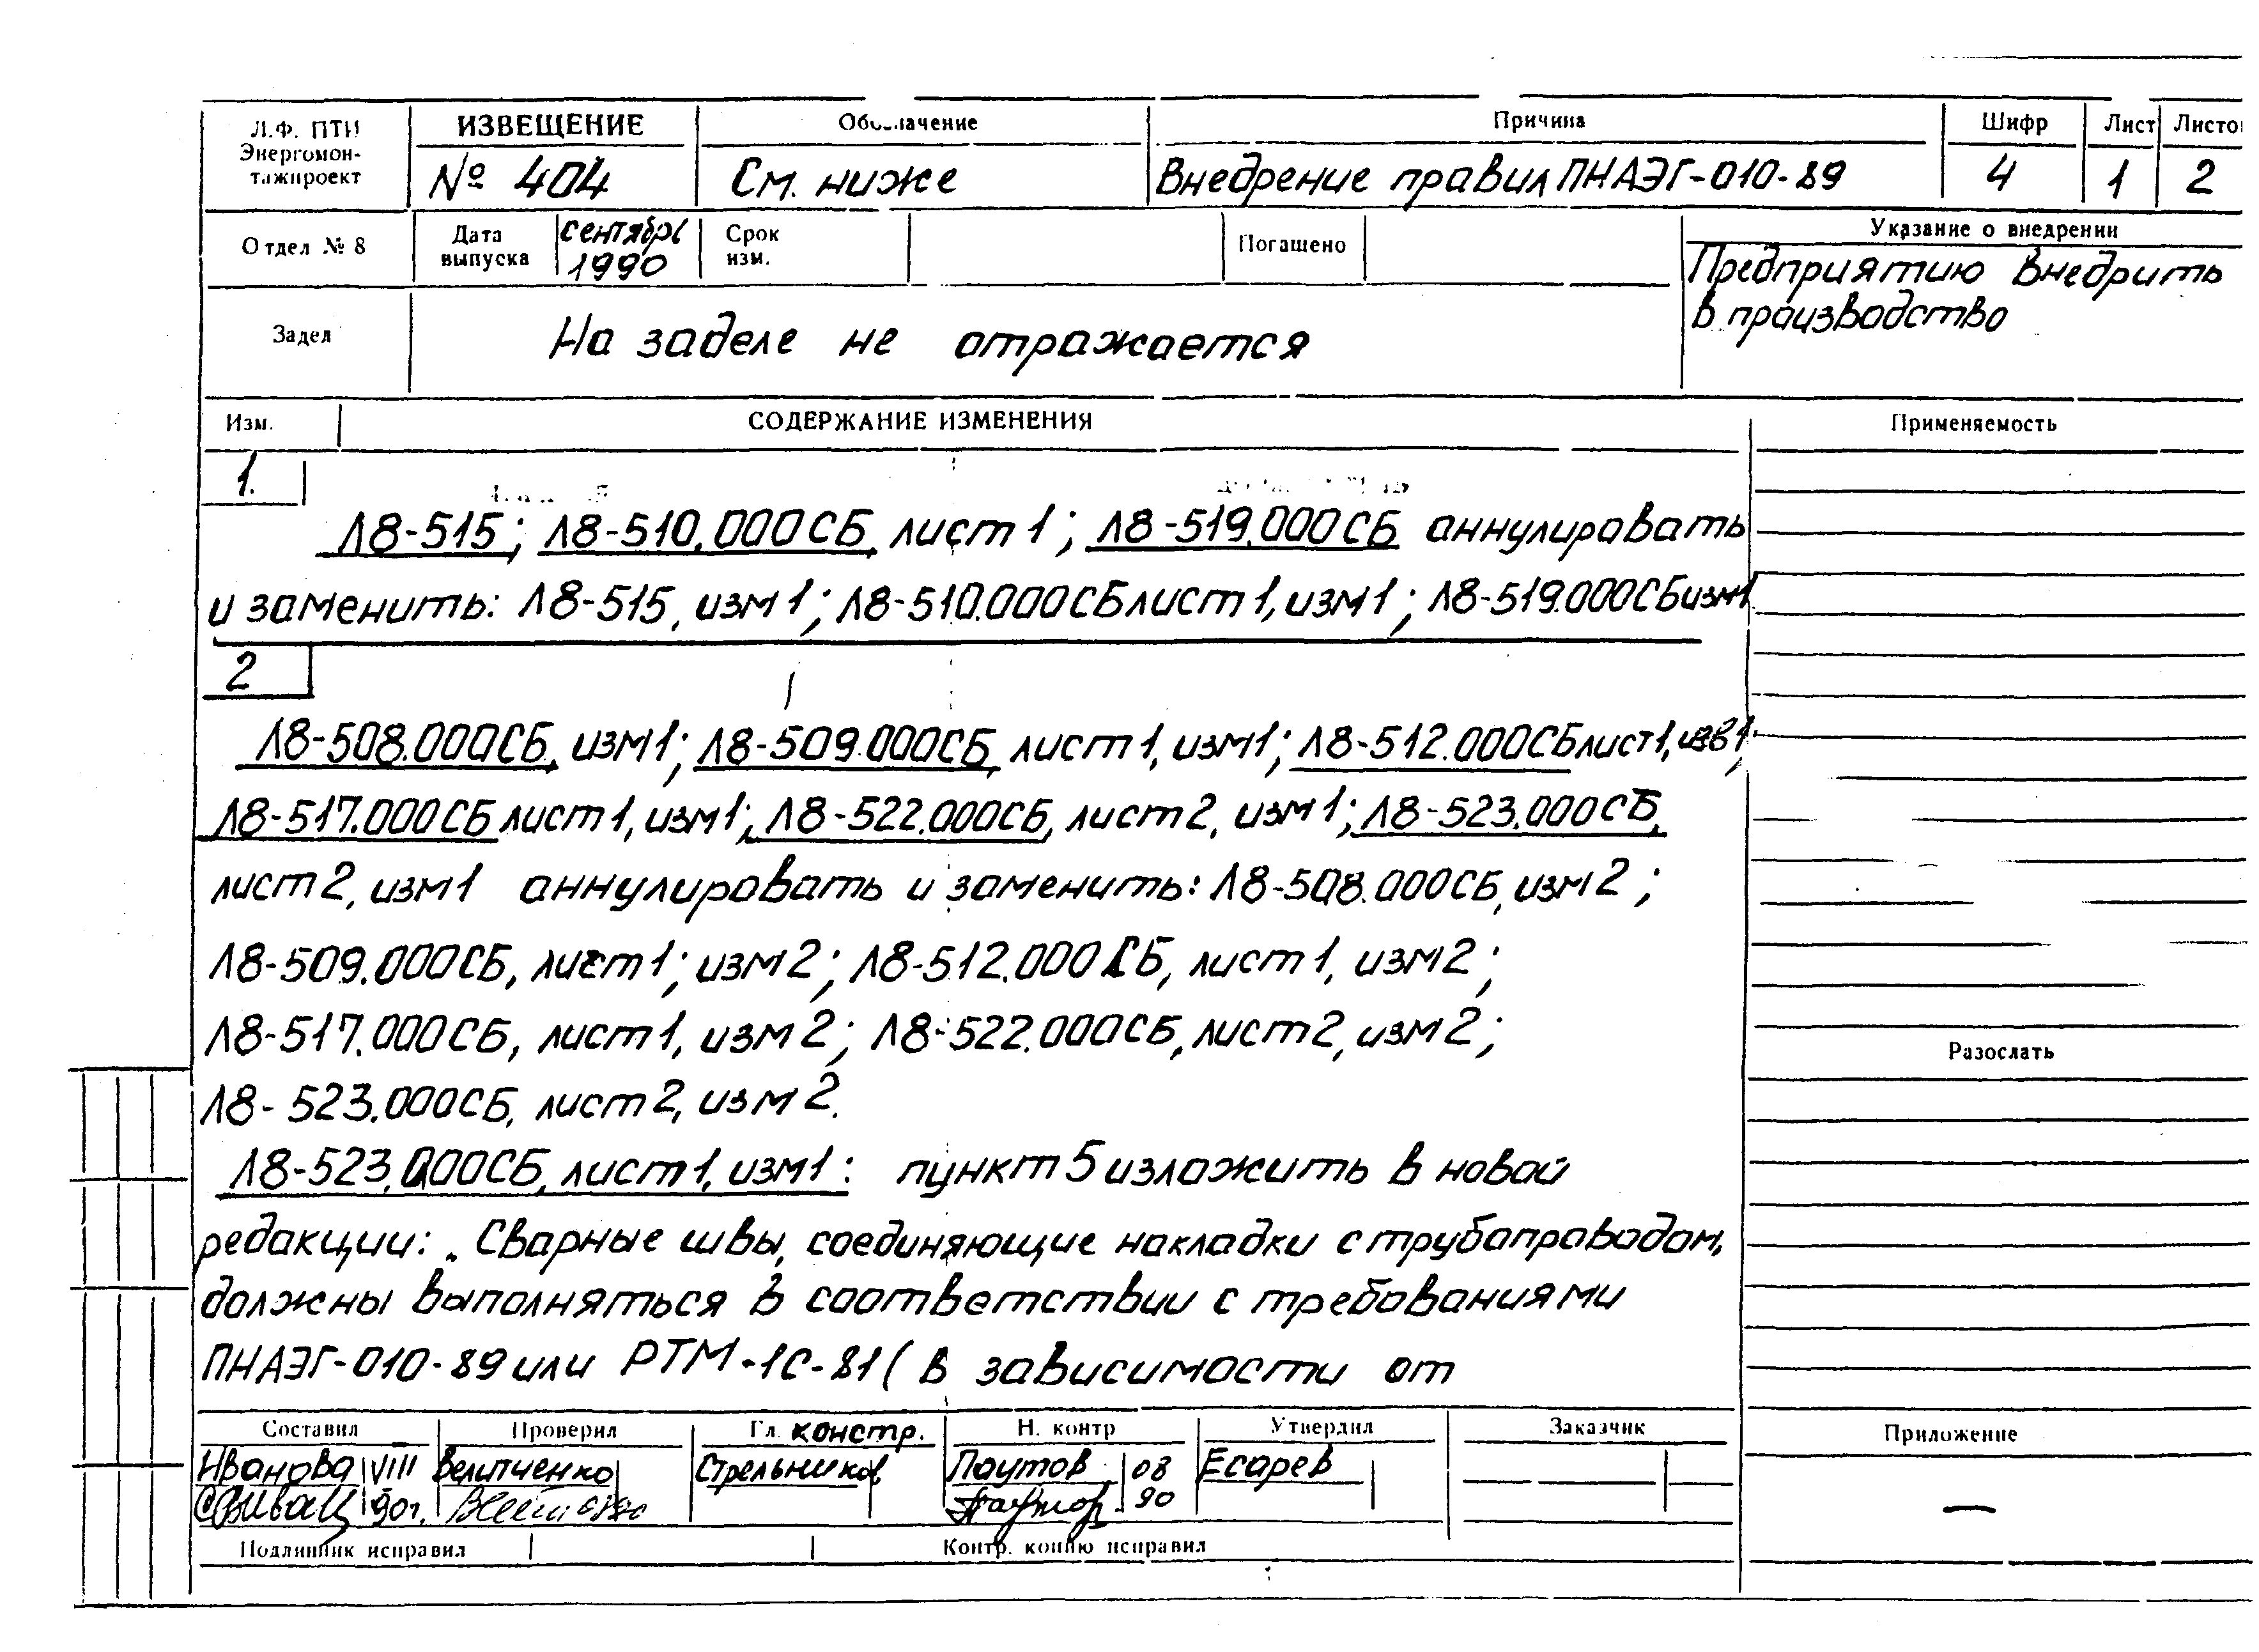 Л.Ф. ПТИ
Энергомон-
тажпроект
ИЗВЕЩЕНИЕ
№ 404
Обозначение
См. ниже
Причина
Внедрение правил ПНАЭГ-010-89
Шифр
4
Лист
1
Листо
2
Отдел № 8
Дата
выпуска
сентябрь
1990
Срок
изм.
Погашено
Указание о внедрении
Предприятию внедрить
в производство
Задел
На заделе не отражается
Изм.
СОДЕРЖАНИЕ ИЗМЕНЕНИЯ
Применяемость
1.
Л8-515; Л8-510.000СБ, лист 1; Л8-519.000СБ аннулировать
и заменить: Л8-515, изм 1; Л8-510.000СБ лист 1, изм 1; Л8-519.000СБ изм 1
2
Л8-508.000СБ, изм 1; Л8-509.000СБ, лист 1, изм 1; Л8-512.000СБ лист 1,
Л8-517.000СБ лист 1, изм 1; Л8-522.000СБ, лист 2, изм 1; Л8-523.000СБ,
лист 2, изм 1 аннулировать и заменить: Л8-508.000СБ, изм 2;
Л8-509.000СБ, лист 1; изм 2; Л8-512.000СБ, лист 1, изм 2;
Л8-517.000СБ, лист 1, изм 2; Л8-522.000СБ, лист 2, изм 2;
Л8-523.000СБ, лист 2, изм 2.
Л8-523.000СБ, лист 1, изм 1: пункт 5 изложить в новой
редакции: „Сварные швы, соединяющие накладки с трубопроводом,
должны выполняться в соответствии с требованиями
ПНАЭГ-010-89 или РТМ-1С-81 (в зависимости от
Разослать
Составил
Иванова VIII
90г.
Проверил
Величенко
Гл. констр.
Стрельников
Н. контр
Паутов 08
90
Утвердил
Есарев
Заказчик
Приложение
—
Подлинник исправил
Контр. копию исправил